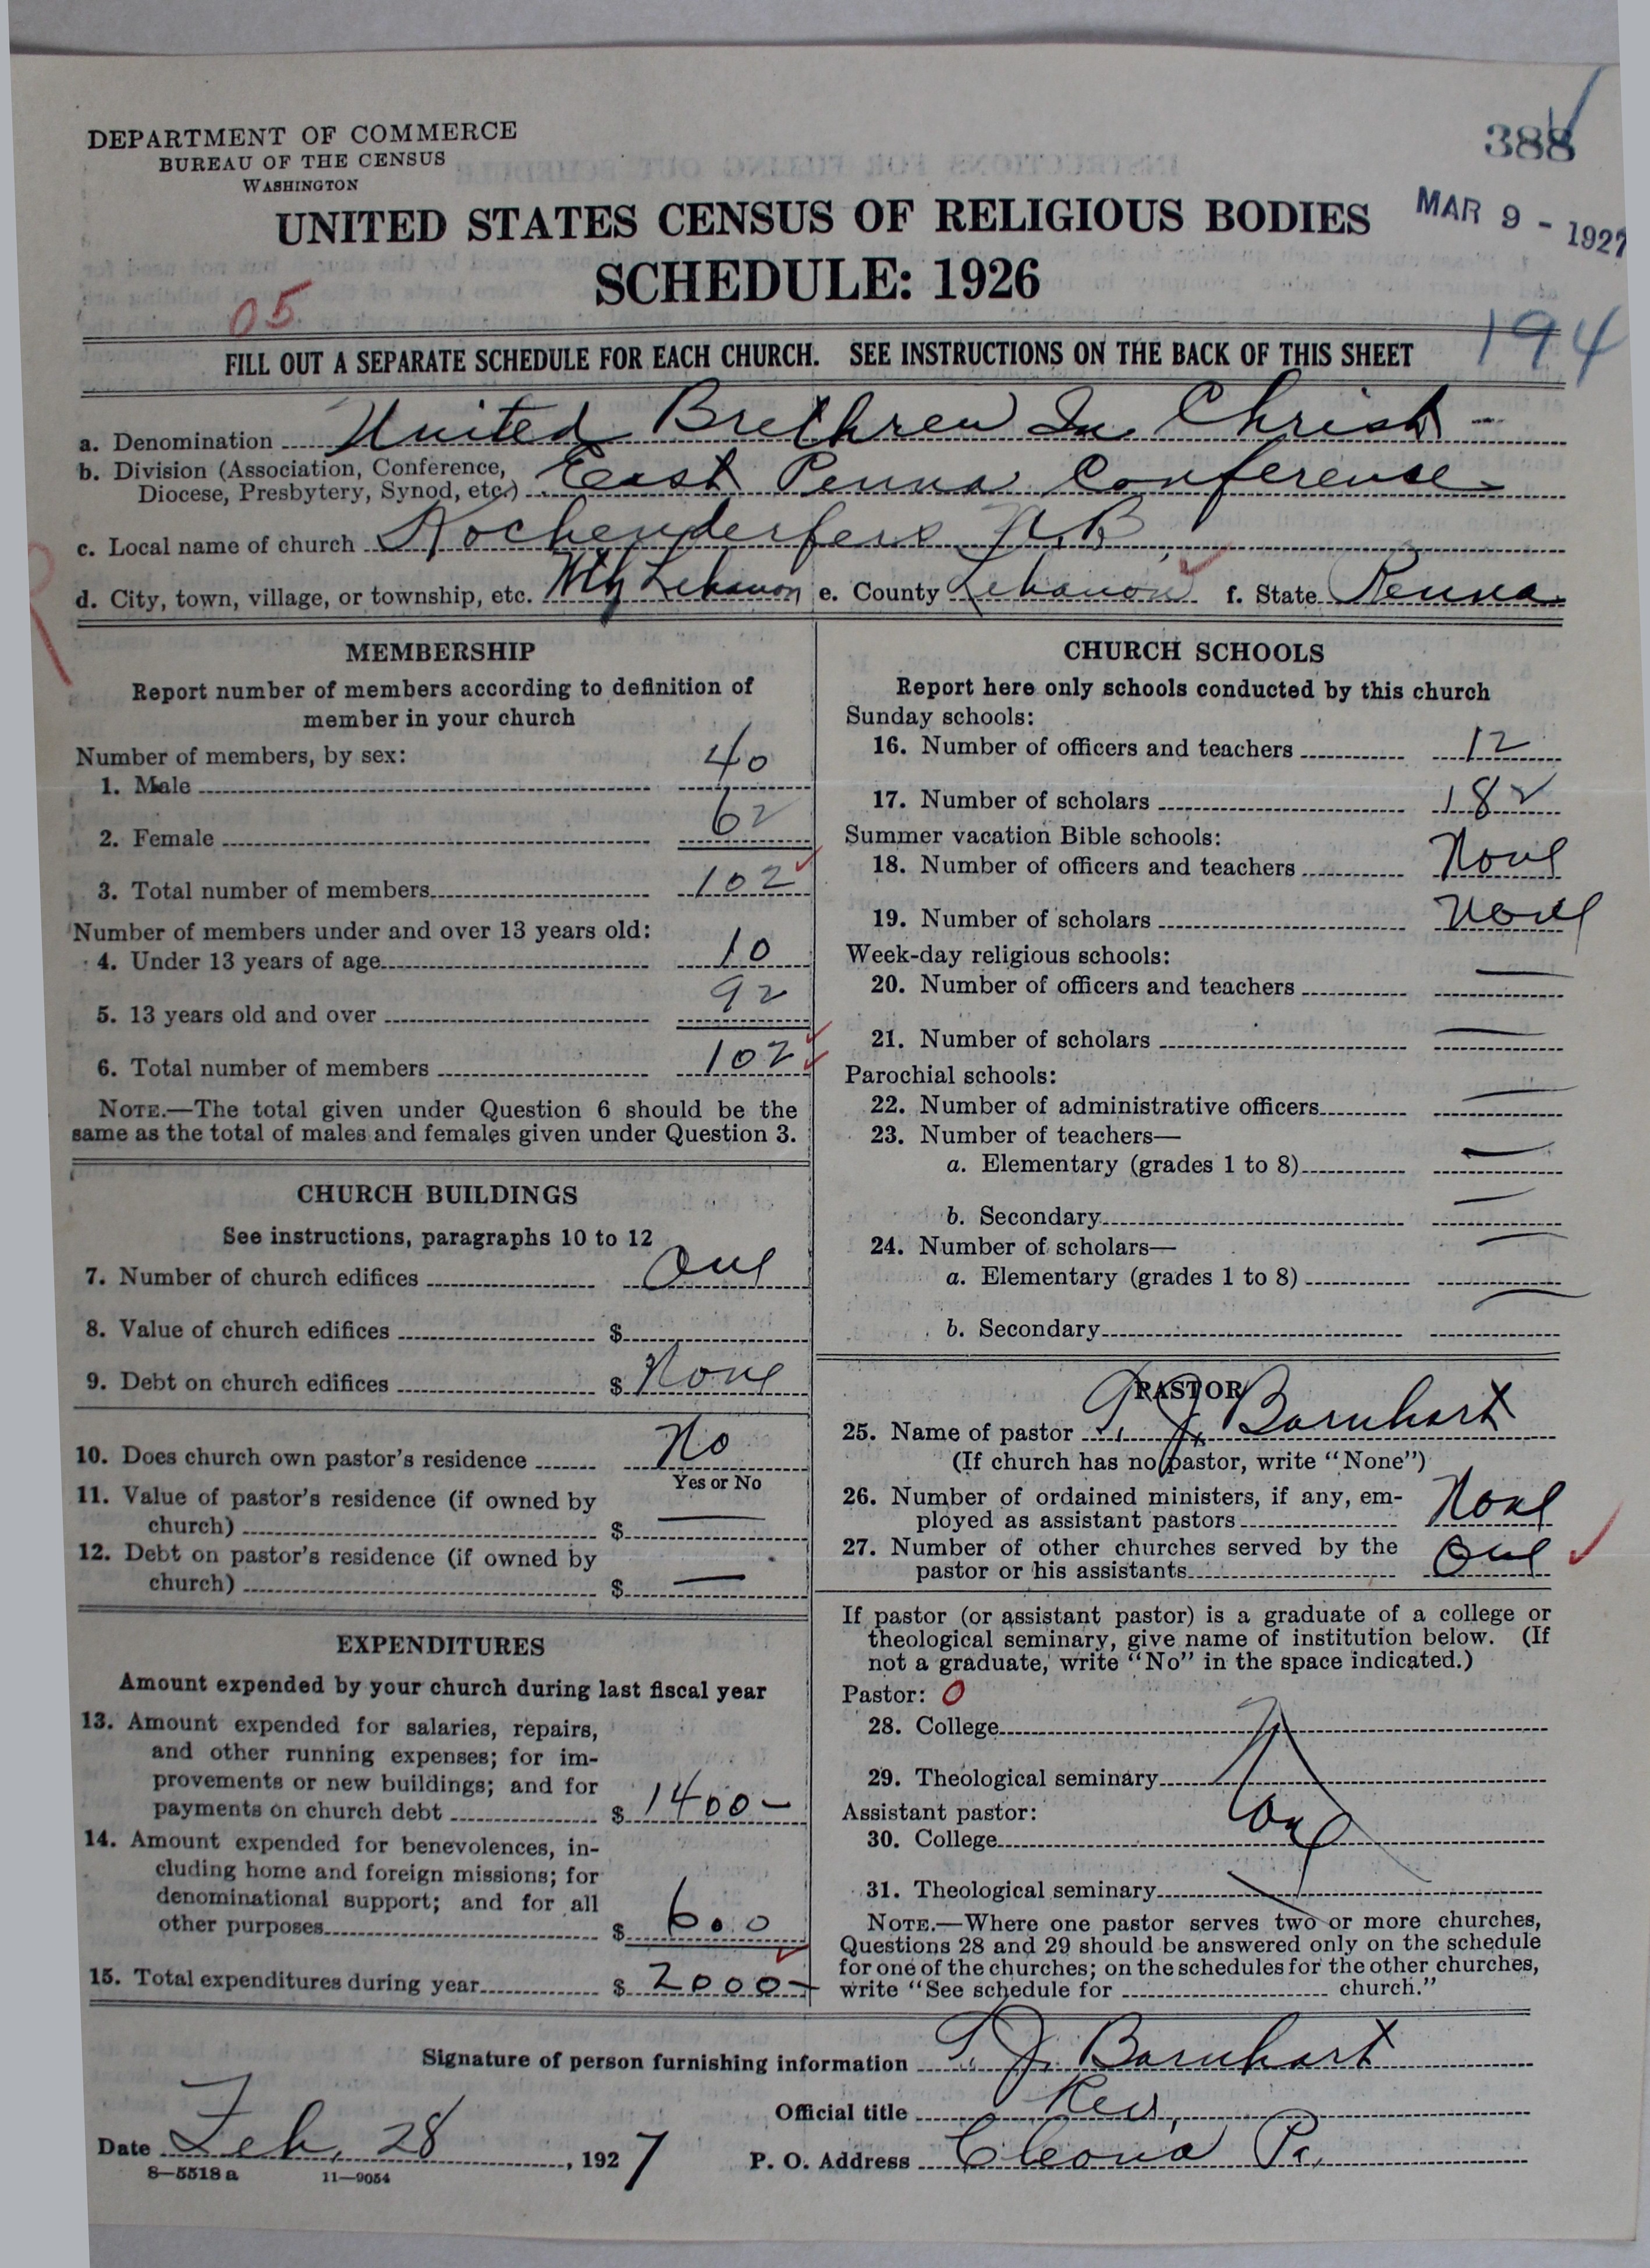 DEPARTMENT OF COMMERCE
BUREAU OF THE CENSUS
WASHINGTON
388
MAR 9 - 1927
UNITED STATES CENSUS OF RELIGIOUS BODIES
SCHEDULE: 1926
05
194
FILL OUT A SEPARATE SCHEDULE FOR EACH CHURCH. SEE INSTRUCTIONS ON THE BACK OF THIS SHEET
a. Denomination United Brethren In Christ
b. Division (Association, Conference, Diocese, Presbytery, Synod, etc.) East Penna Conference
c. Local name of church Kochenderfers U.B.
d. City, town, village, or township, etc. Lebanon e. County Lebanon f. State Penna
MEMBERSHIP
Report number of members according to definition of
member in your church
Number of members, by sex:
1. Male 40
2. Female 62
3. Total number of members 102
Number of members under and over 13 years old:
4. Under 13 years of age 10
5. 13 years old and over 92
6. Total number of members 102
NOTE.—The total given under Question 6 should be the
same as the total of males and females given under Question 3.
CHURCH BUILDINGS
See instructions, paragraphs 10 to 12
7. Number of church edifices One
8. Value of church edifices $
9. Debt on church edifices $ None
10. Does church own pastor's residence No
Yes or No
11. Value of pastor's residence (if owned by
church) $ —
12. Debt on pastor's residence (if owned by
church) $ —
EXPENDITURES
Amount expended by your church during last fiscal year
13. Amount expended for salaries, repairs,
and other running expenses; for im-
provements or new buildings; and for
payments on church debt $ 1400-
14. Amount expended for benevolences, in-
cluding home and foreign missions; for
denominational support; and for all
other purposes $ 600
15. Total expenditures during year $ 2000-
CHURCH SCHOOLS
Report here only schools conducted by this church
Sunday schools:
16. Number of officers and teachers 12
17. Number of scholars 182
Summer vacation Bible schools:
18. Number of officers and teachers None
19. Number of scholars None
Week-day religious schools:
20. Number of officers and teachers —
21. Number of scholars —
Parochial schools:
22. Number of administrative officers —
23. Number of teachers—
a. Elementary (grades 1 to 8) —
b. Secondary —
24. Number of scholars—
a. Elementary (grades 1 to 8) —
b. Secondary —
PASTOR
25. Name of pastor J. Barnhart
(If church has no pastor, write "None")
26. Number of ordained ministers, if any, em-
ployed as assistant pastors None
27. Number of other churches served by the
pastor or his assistants One
If pastor (or assistant pastor) is a graduate of a college or
theological seminary, give name of institution below. (If
not a graduate, write "No" in the space indicated.)
Pastor: 0
28. College
29. Theological seminary
Assistant pastor:
None
30. College
31. Theological seminary
NOTE.—Where one pastor serves two or more churches,
Questions 28 and 29 should be answered only on the schedule
for one of the churches; on the schedules for the other churches,
write "See schedule for church."
Signature of person furnishing information J. Barnhart
Official title Rev.
Date Feb. 28, 1927 P. O. Address Cleona Pa.
8—5518 a 11—9054